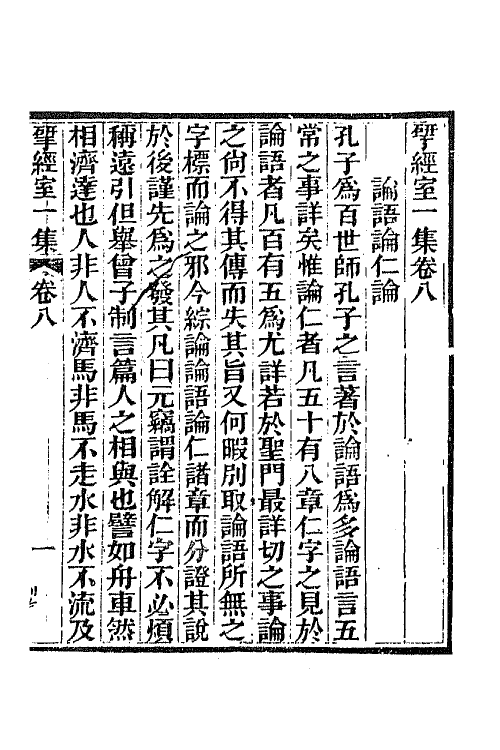 揅經室一集卷八
論語論仁論
孔子爲百世師孔子之言著於論語爲多論語言五
常之事詳矣惟論仁者凡五十有八章仁字之見於
論語者凡百有五爲尤詳若於聖門最詳切之事論
之尚不得其傳而失其旨又何暇別取論語所無之
字標而論之邪今綜論論語論仁諸章而分證其說
於後謹先爲之發其凡曰元竊謂詮解仁字不必煩
稱遠引但舉曾子制言篇人之相與也譬如舟車然
相濟達也人非人不濟馬非馬不走水非水不流及
揅經室一集 卷八 一